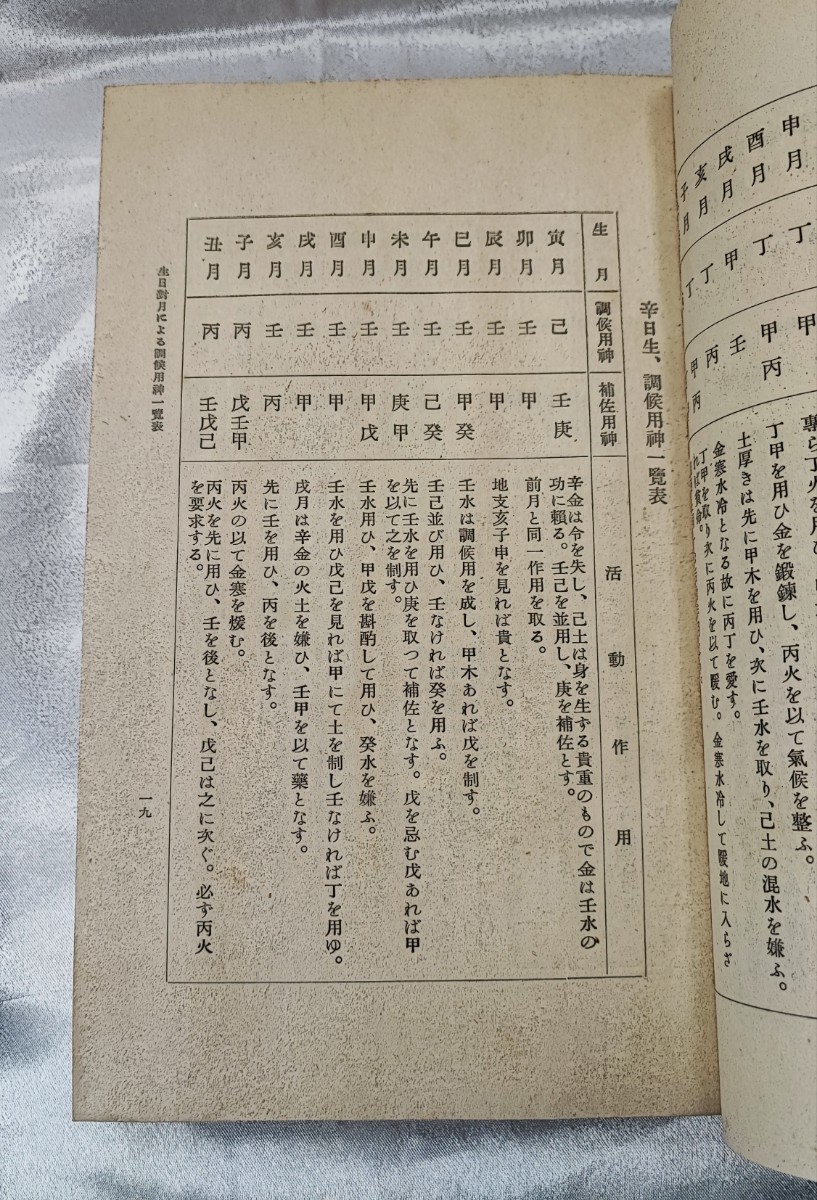 申月
酉月
戌月
亥月
子月
丁
甲
丁
丁
甲
甲丙
壬
丙
甲丙
丁甲を用ひ金を鍛錬し、丙火を以て氣候を整ふ。
土厚きは先に甲木を用ひ、次に壬水を取り、己土の混水を嫌ふ。
金寒水冷となる故に丙丁を愛す。
丁甲を取り次に丙火を以て暖む。金寒水冷して暖地に入らさ
れば貧命。
辛日生、調候用神一覽表
生月
調候用神
補佐用神
活動作用
寅月
己
壬庚
辛金は令を失し、己土は身を生ずる貴重のもので金は壬水の
功に賴る。壬己を並用し、庚を補佐とす。
卯月
壬
甲
前月と同一作用を取る。
辰月
壬
甲
地支亥子申を見れば貴となす。
巳月
壬
甲癸
壬水は調候用を成し、甲木あれば戊を制す。
午月
壬
己癸
壬己並び用ひ、壬なければ癸を用ふ。
未月
壬
庚甲
先に壬水を用ひ庚を取つて補佐となす。戊を忌む戊あれば甲
を以て之を制す。
申月
壬
甲戊
壬水用ひ、甲戊を斟酌して用ひ、癸水を嫌ふ。
酉月
壬
甲
壬水を用ひ戊己を見れば甲にて土を制し壬なければ丁を用ゆ。
戌月
壬
甲
戌月は辛金の火土を嫌ひ、壬甲を以て藥となす。
亥月
壬
丙
先に壬を用ひ、丙を後となす。
子月
丙
戊壬甲
丙火の以て金寒を煖む。
丑月
丙
壬戊己
丙火を先に用ひ、壬を後となし、戊己は之に次ぐ。必ず丙火
を要求する。
生日對月による調候用神一覽表
一九